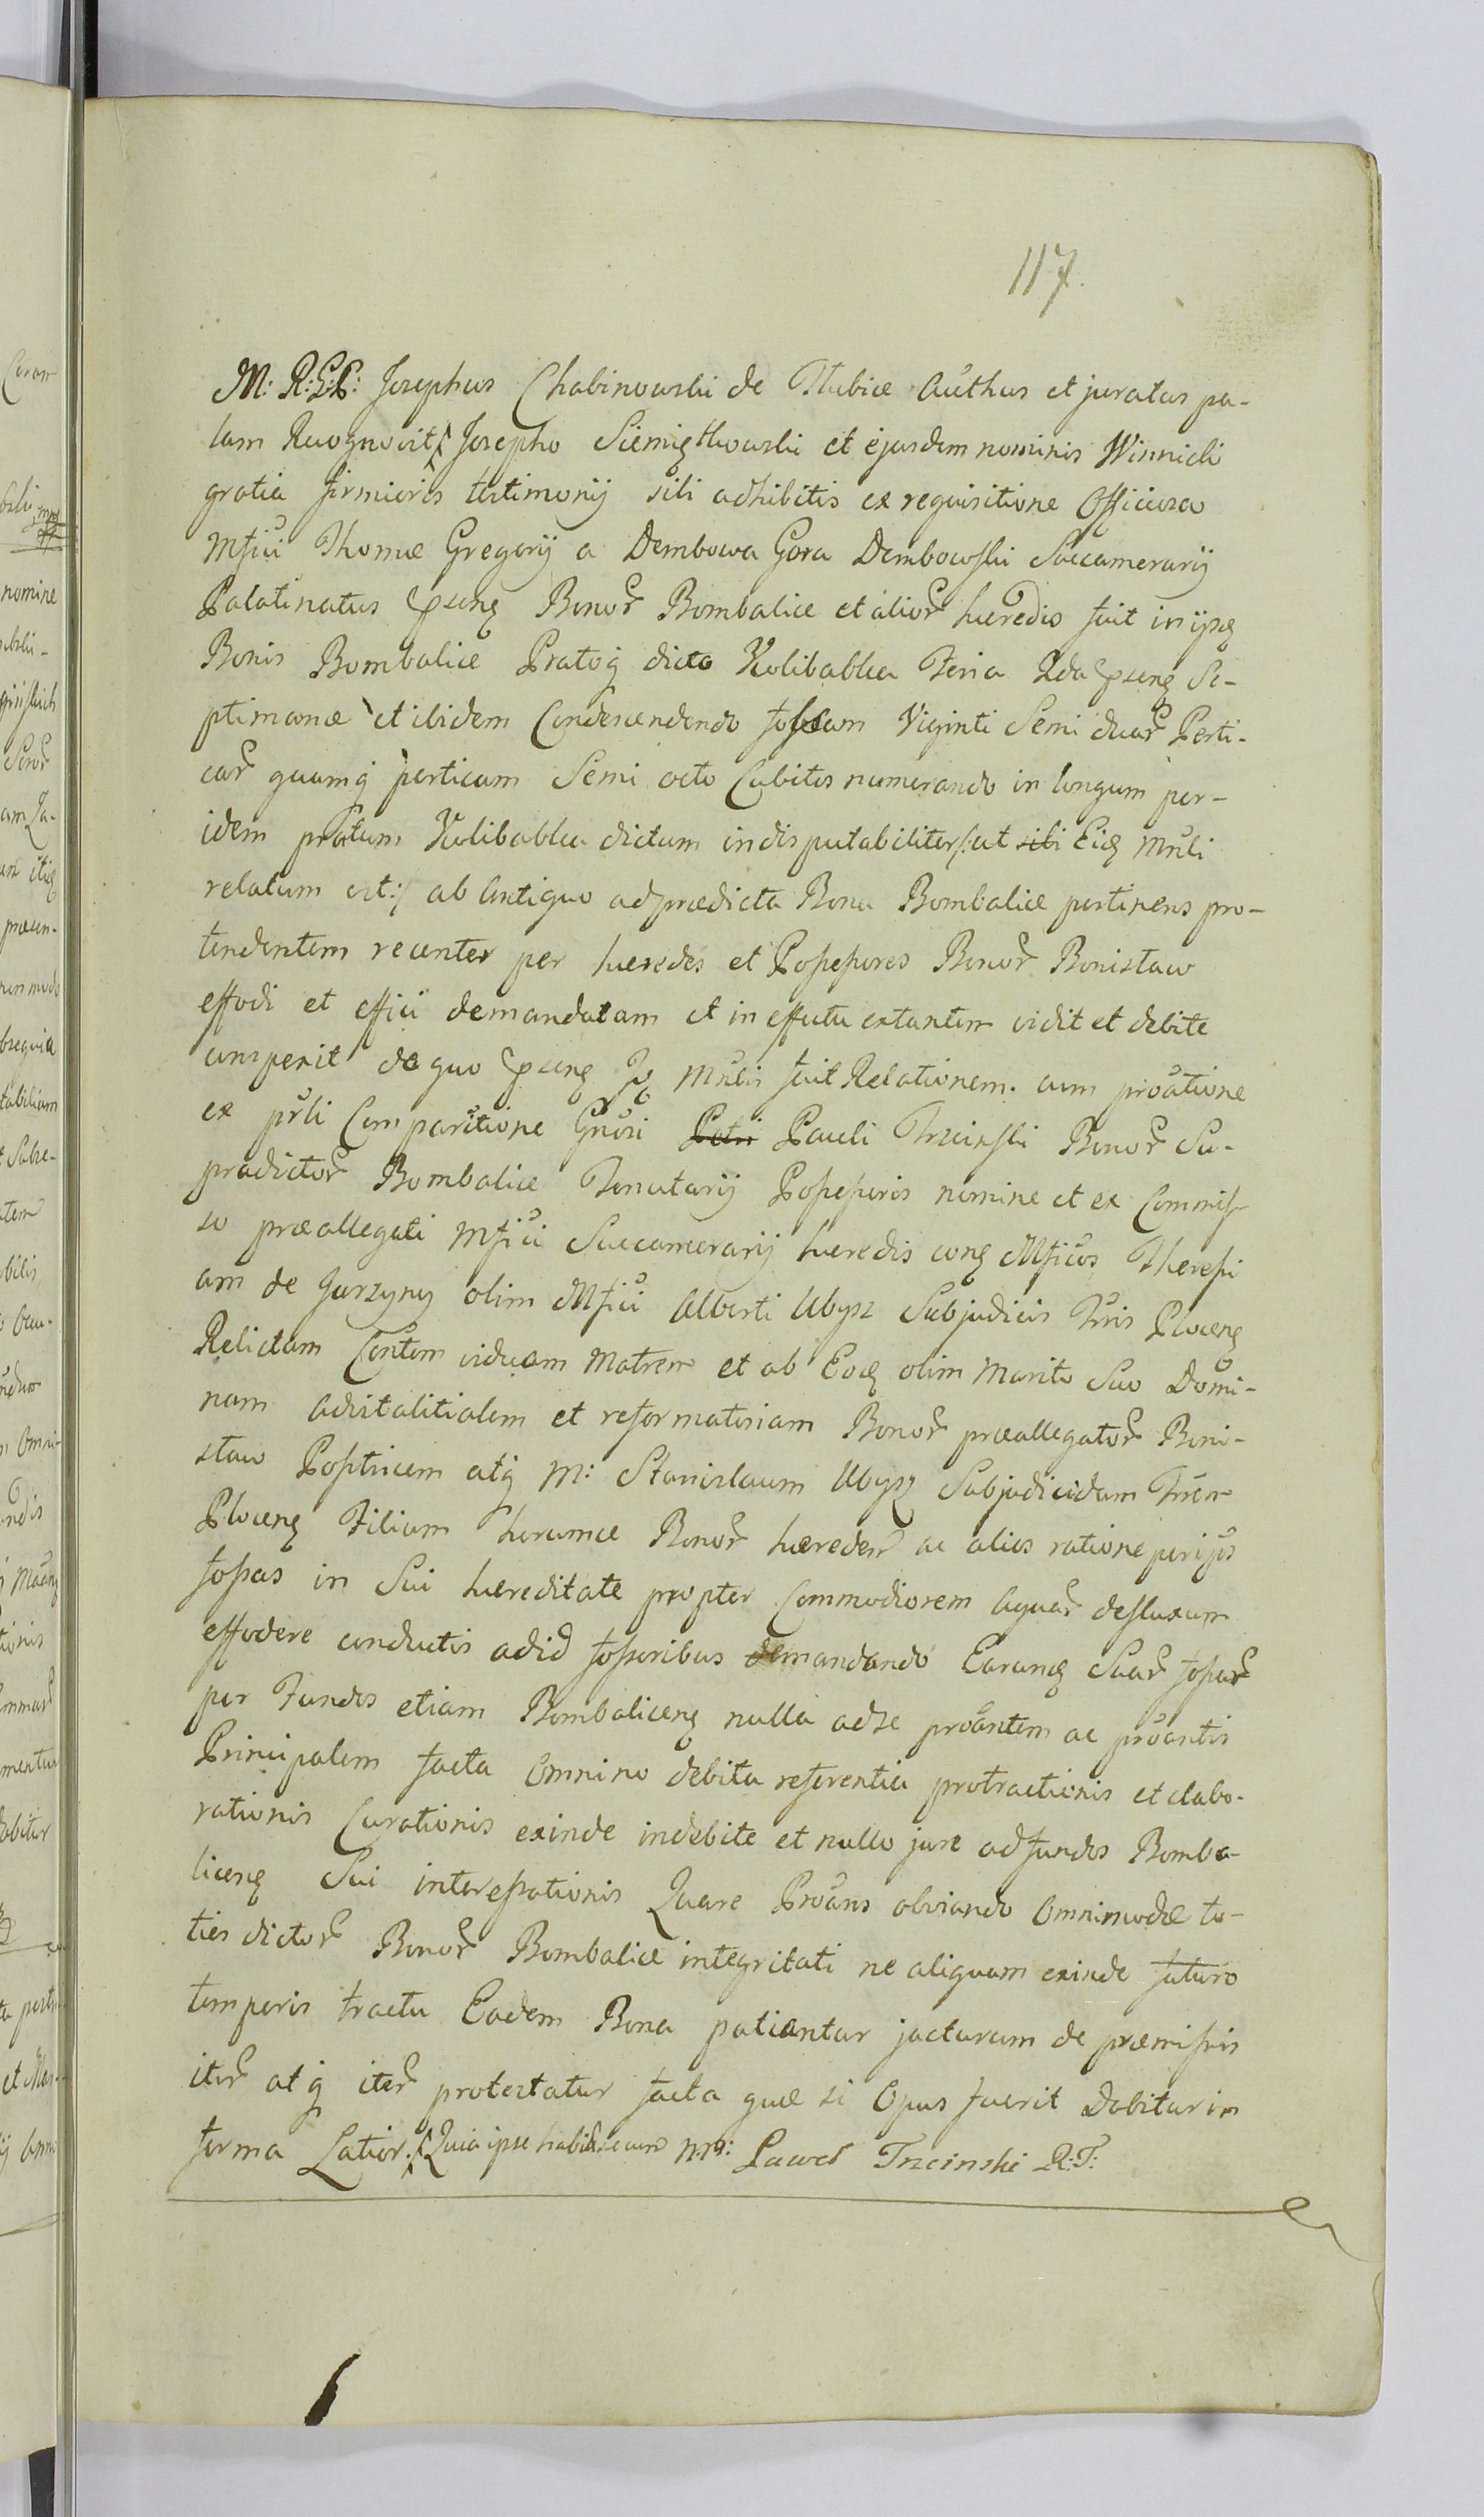 117.
M: R: G: L: Josephus Chabinowski de Słubice Authus et juratus pa-
lam Recognovit Josepho Siemiętkowski et ejusdem nominis Winnicki
gratia firmioris testimonij sibi adhibitis ex requisitione Officiosa
Mfici Thomæ Gregorij a Dembowa Gora Dembowski Succamerarij
Palatinatus Bonor Bombalice et alior hæredis fuit in ijsq
Bonis Bombalice Pratoq dicto Kolibabka Feria 2da Se-
ptimanæ et ibidem Condescendendo fossam Viginti Semi duar Perti-
car quamq perticam Semi octo Cubitos numerando in longum per-
idem pratum Kolibabka dictum indisputabiliter /:ut sibi Eidq Mnli
relatum est:/ ab Antiquo ad prædicta Bona Bombalice pertinens pro-
tendentem recenter per hæredes et Possessores Bonor Bonisław
effodi et effici demandatam et in effectu extantem vidit et debite
comperit de quo Mnlis fuit Relationem. cum proatione
ex prli Comparitione Gnosi Petri Pauli Trzcinski Bonor Su-
pradictor Bombalice Tenutarij Possessoris nomine et ex Commis-
so præallegati Mfici Succamerarij hæredis conq Mficos Theresi
am de Gurzyny olim Mfici Alberti Ubysz Subjudicis Tris Plocenq
Relictam Contem viduam Matrem et ab Eodq olim Marito Suo Domi-
nam Advitalitialem et reformatoriam Bonor præallegator Boni-
sław Possticem atq M: Stanislaum Ubysz Subjudicidam Trem
Plocenq Filium horumce Bonor hæredem ac alios ratione
fossas in Sui hæreditate propter Commodiorem Aquar defluxum
effodere conductis ad id fossoribus demandando Earumq Suar fossar
per Fundos etiam Bombalicenq nulla ad se proantem ac proantis
Principalem facta Omnino debita referentia protractionis et elabo-
rationis Curationis exinde indebite et nullo jure ad fundos Bomba-
licenq Sui interessationis Quare Proans obviando Omnimodæ to-
ties dictor Bonor Bombalice integritati ne aliquam exinde futuro
temporis tractu Eadem Bona patiantur jacturam de præmissis
iter atq iter protestatur facta quæ si Opus fuerit Dabitur in
forma Latior. Quia ipse habuit secum Paweł Trzcinski R:T: